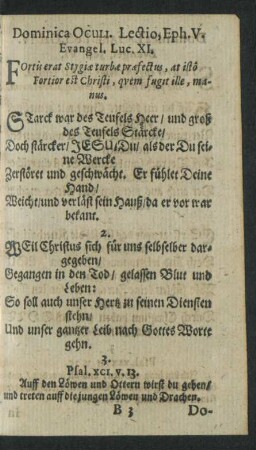 Dominica Oculi. Lectio, Eph. V.
Evangel. Luc. XI.
FOrtis erat Stygiæ turbæ præfectus, at istô
Fortior est Christi, qvem fugit ille, ma-
nus.
STarck war des Teufels Heer/ und groß
des Teufels Stärcke/
Doch stärcker/ JESU/ Du/ als der Du sei-
ne Wercke
Zerstöret und geschwächt. Er fühlet Deine
Hand/
Weicht/ und verläst sein Hauß/ da er vor war
bekant.
2.
WEil Christus sich für uns selbselber dar-
gegeben/
Gegangen in den Tod/ gelassen Blut und
Leben:
So soll auch unser Hertz zu seinen Diensten
stehn/
Und unser gantzer Leib nach Gottes Worte
gehn.
3.
Psal. XCI. v. 13.
Auff den Löwen und Ottern wirst du gehen/
und treten auff die jungen Löwen und Drachen.
B 3 Do-